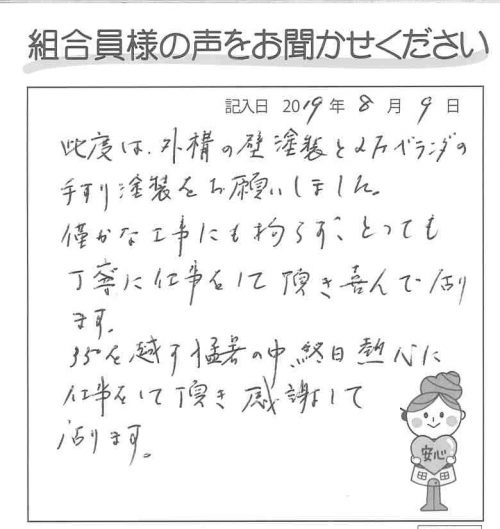 組合員様の声をお聞かせください
記入日 2019年 8月 9日
此度は、外構の壁塗装と2Fベランダの
手すり塗装をお願いしました。
僅かな工事にも拘らず、とっても
丁寧に仕事をして頂き喜んで居り
ます。
35°を越す猛暑の中、終日熱心に
仕事をして頂き感謝して
居ります。
安心